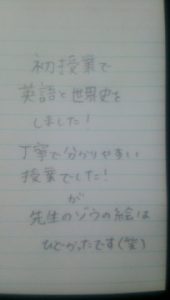 初授業で
英語と世界史を
しました！
丁寧で分かりやすい
授業でした！
が
先生のゾウの絵は
ひどかったです(笑)